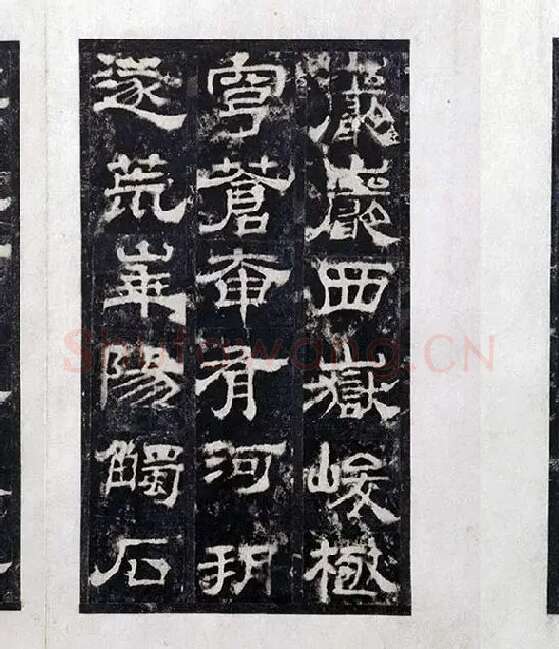 巖巖西嶽峻極
穹蒼奄有河朔
遂荒華陽觸石
Shufawang.CN